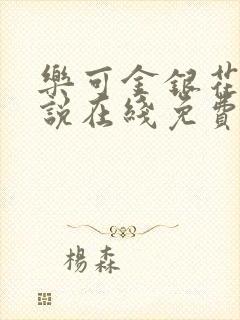 樂可金銀花
說在綫免費
楊森